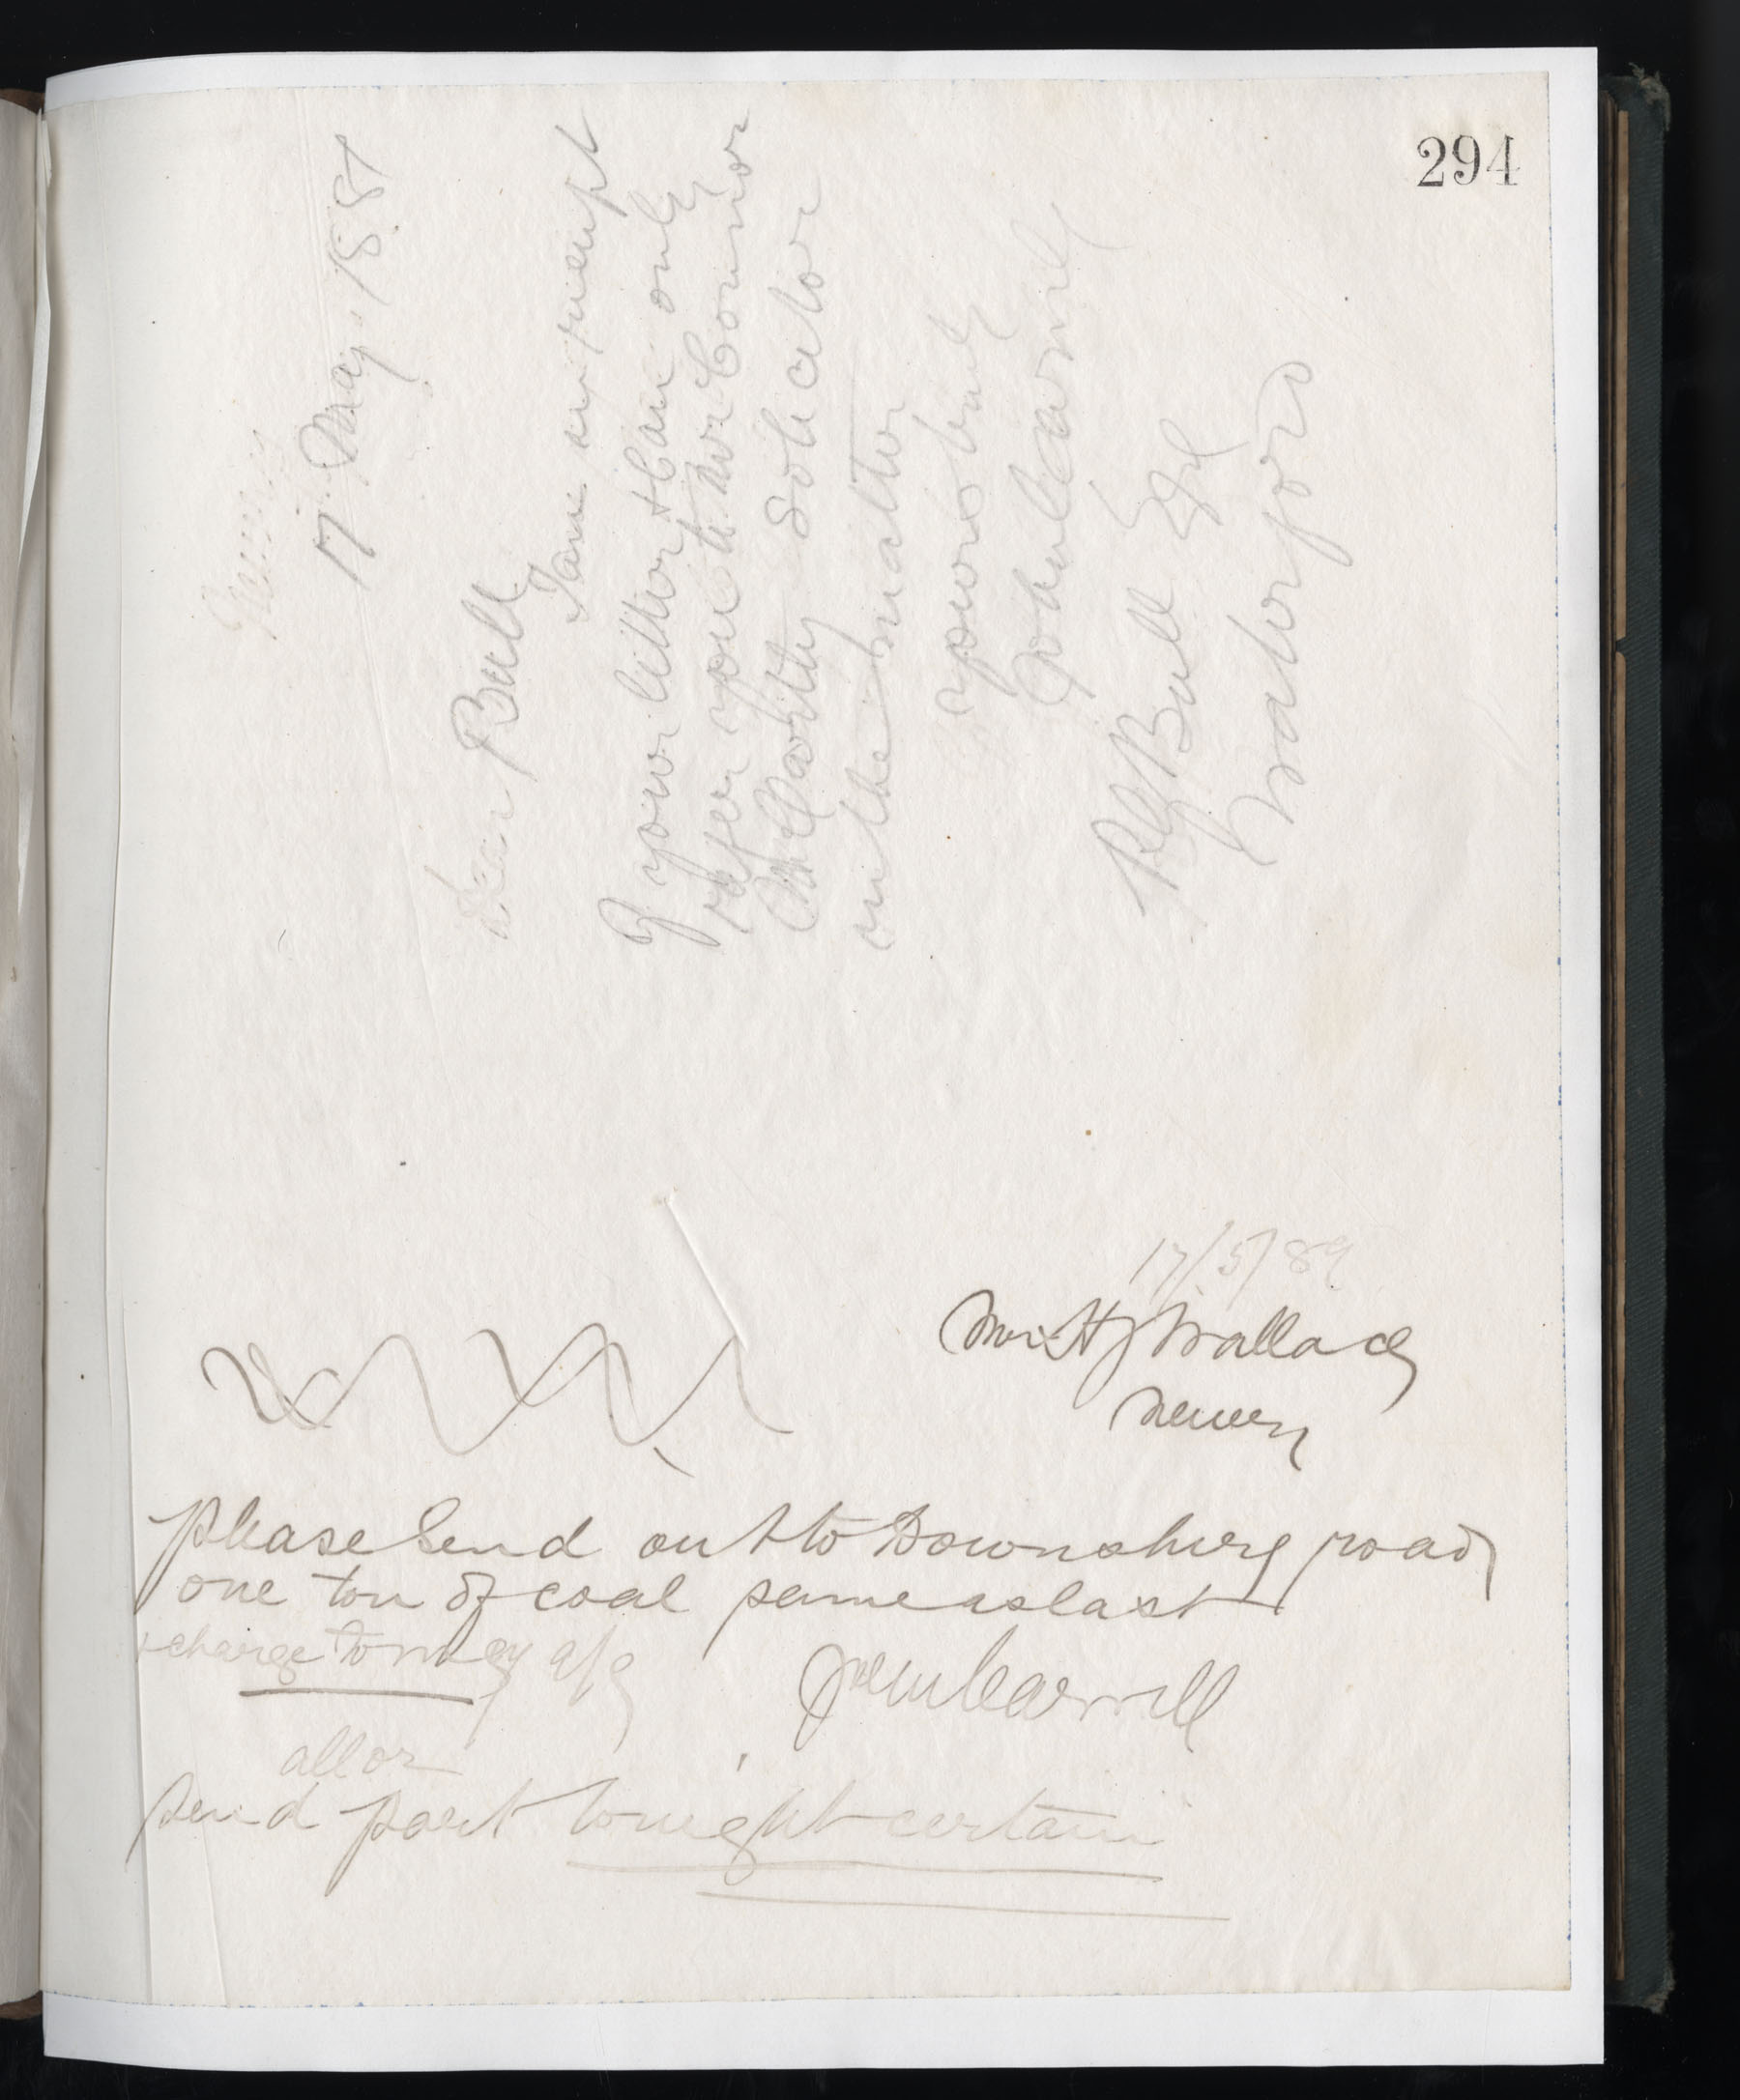 294
Newry
17 May 1889
Dear Bell
I am in receipt
of your letter & Can only
refer you to Mr Connor
McCarthy Solicitor
in the matter
yours truly
John Carvill
R G Bell Esq
Waterford
17/5/89
Mr H J Wallace
Newry
please Send out to Downshire road
one ton of coal same as last
& charge to my a/c
John Carvill
all or
Send part tonight certain